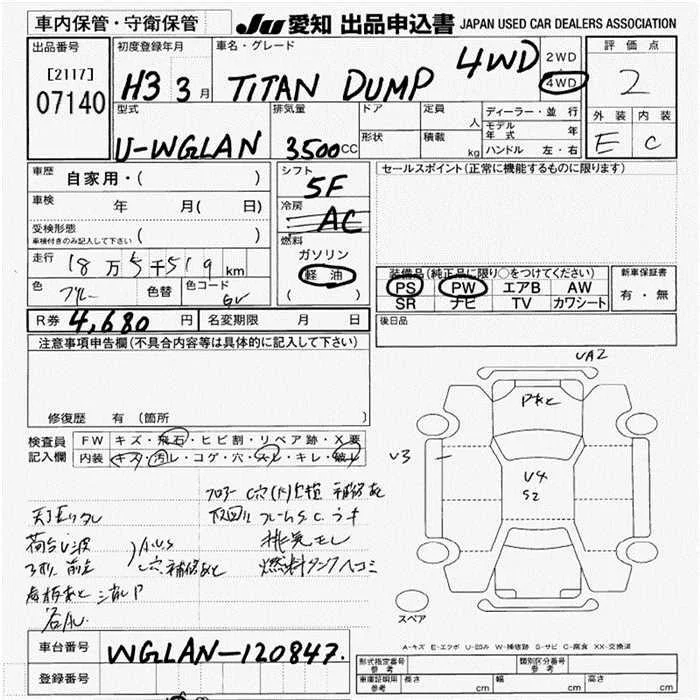 車内保管・守衛保管 JU 愛知 出品申込書 JAPAN USED CAR DEALERS ASSOCIATION
出品番号 初度登録年月 車名・グレード 2WD 評価点
[2117] H3 3月 TITAN DUMP 4WD 4WD 2
07140
型式 排気量 ドア 定員 人 ディーラー・並行 外装 内装
モデル年式 年
U-WGLAN 3500CC 形状 積載 kg ハンドル 左・右 E C
車歴 自家用・( ) シフト 5F セールスポイント(正常に機能するものに限ります)
車検 年 月( 日) 冷房 AC
受検形態 ( )
車検付きのみ記入して下さい
燃料 ガソリン
走行 18万5千519km 軽油 装備品(純正品に限り○をつけてください) 新車保証書
色 ブルー 色替 色コード ( ) PS PW エアB AW 有・無
SR ナビ TV カワシート
R券 4,680円 名変期限 月 日 後日品
注意事項申告欄(不具合内容等は具体的に記入して下さい)
UA2
修復歴 有(箇所 )
検査員 FW キズ・飛石・ヒビ割・リペア跡・X要
記入欄 内装 キズ・汚レ・コゲ・穴・スレ・キレ・破レ
U3
U4
S2
フロアー C穴
下回り フレームS.C.
排気モレ
荷台U波 A.U.S 燃料タンクヘコミ
穴補修あと
スペア
A-キズ E-エクボ U-凹み W-補修跡 S-サビ C-腐食 XX-交換済
車台番号 WGLAN-120847.
登録番号
型式指定番号 参考 類別区分番号 参考
車庫証明用 参考 長さ cm 幅 cm 高さ cm